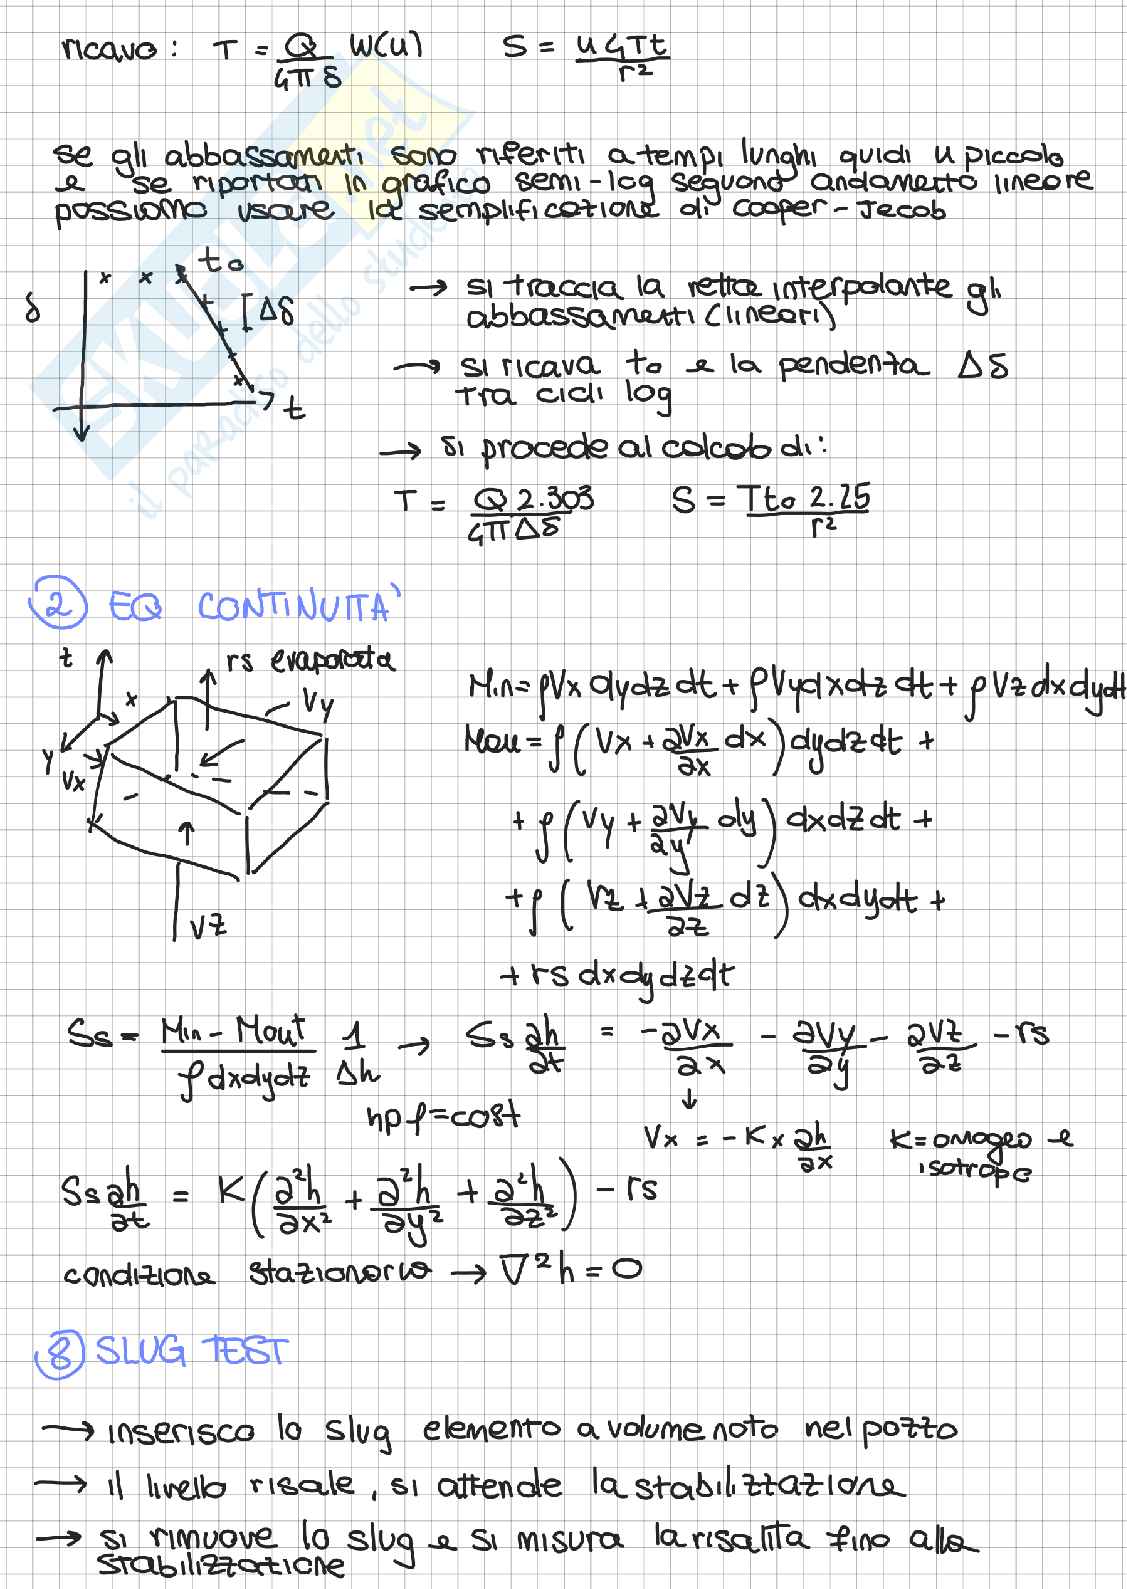 ricavo: T = Q/4πδ W(u)   S = u4Tt/r²
se gli abbassamenti sono riferiti a tempi lunghi quidi u piccolo
e se riportati in grafico semi-log seguono andamento lineare
possiamo usare la semplificazione di Cooper-Jecob
δ   t₀   Δδ   t
→ si traccia la retta interpolante gli
abbassamenti (lineari)
→ si ricava t₀ e la pendenza Δδ
tra cicli log
→ si procede al calcolo di:
T = Q 2.303/4πΔδ   S = Tt₀ 2.25/r²
② EQ CONTINUITA'
z   x   y   Vx   rs evaporata   Vy   Vz
Min = ρVx dydz dt + ρVydxdz dt + ρVz dxdydt
Mou = ρ(Vx + ∂Vx/∂x dx) dydzdt +
+ ρ(Vy + ∂Vy/∂y dy) dxdzdt +
+ ρ(Vz + ∂Vz/∂z dz) dxdydt +
+ rs dxdydzdt
Ss = Min - Mout/ρdxdydz 1/Δh → Ss ∂h/∂t = -∂Vx/∂x - ∂Vy/∂y - ∂Vz/∂z - rs
hp ρ=cost
↓
Vx = -Kx ∂h/∂x   K=omogeo e
isotropo
Ss ∂h/∂t = K(∂²h/∂x² + ∂²h/∂y² + ∂²h/∂z²) - rs
condizione stazionario → ∇²h = 0
⑧ SLUG TEST
→ inserisco lo slug elemento a volume noto nel pozzo
→ il livello risale, si attende la stabilizzazione
→ si rimuove lo slug e si misura la risalita fino alla
stabilizzazione
SKUOLA.net
il paradiso dello studente